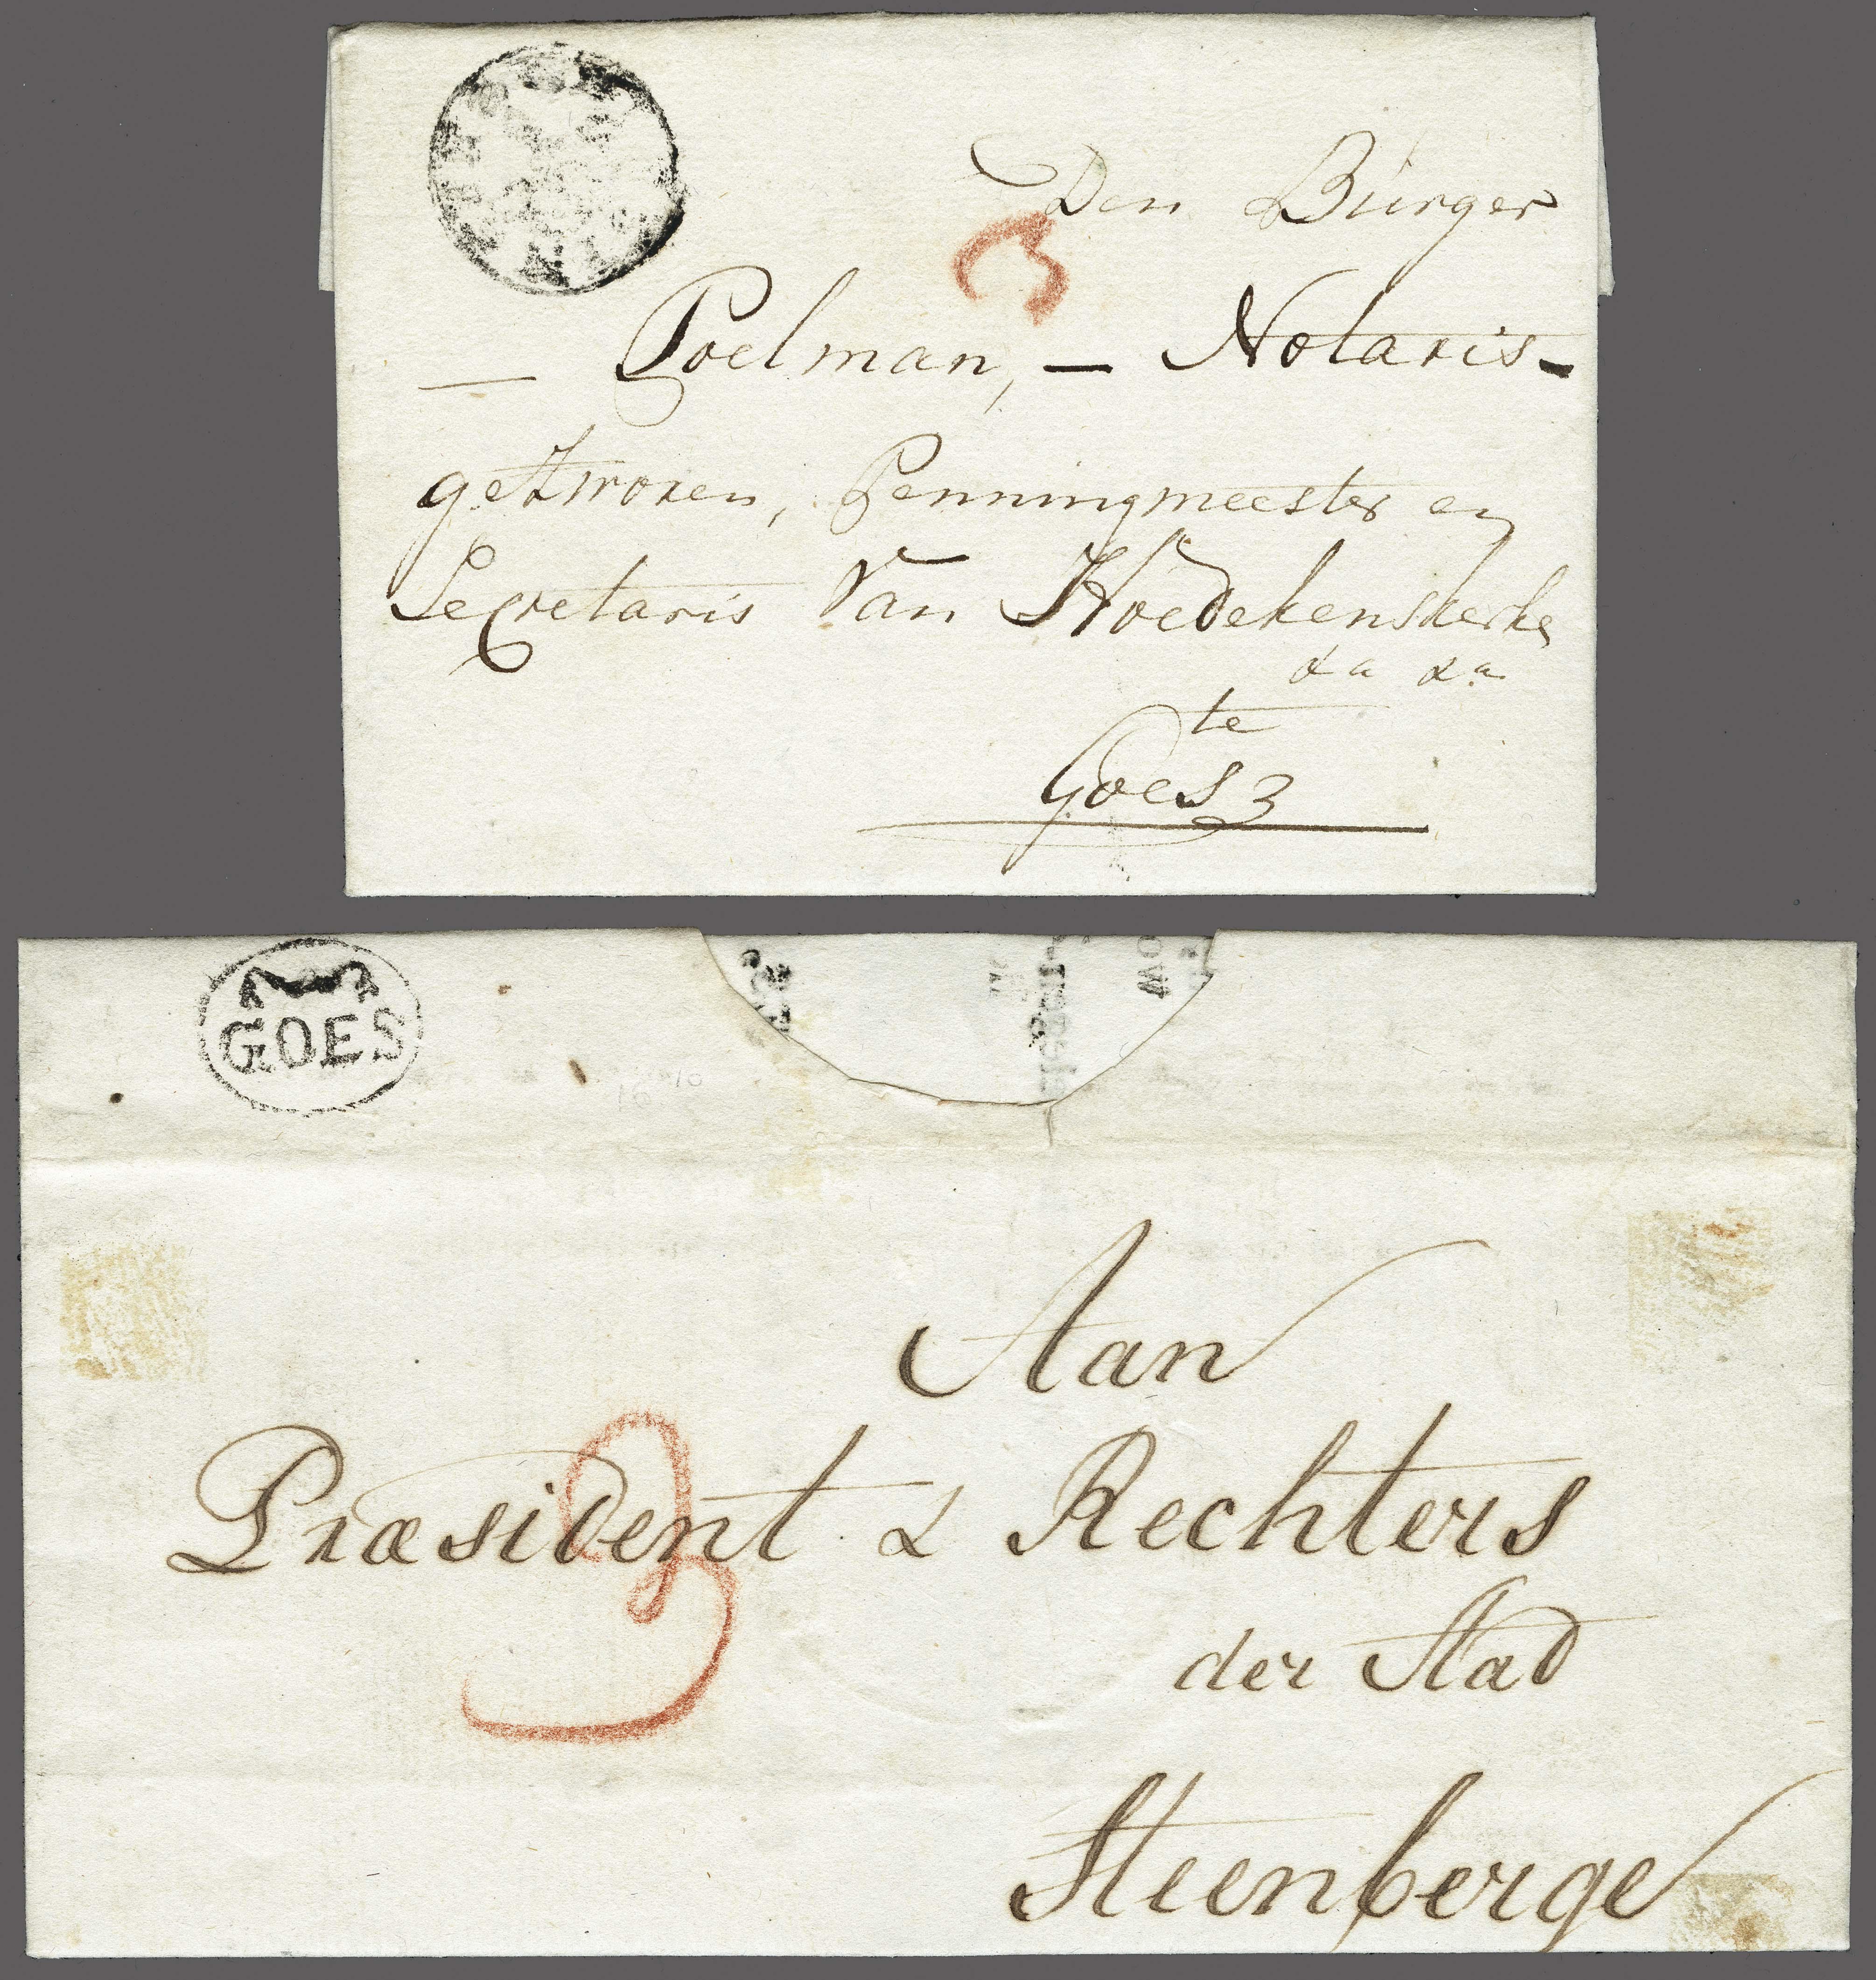 Den Burger
3
— Poelman, — Notaris-
gezworen, Penningmeester en
Secretaris Van Hoedekenskerke
&a &a
te
Goes
GOES
16 10
Aan
3
Præsident & Rechters
der Stad
Steenberge